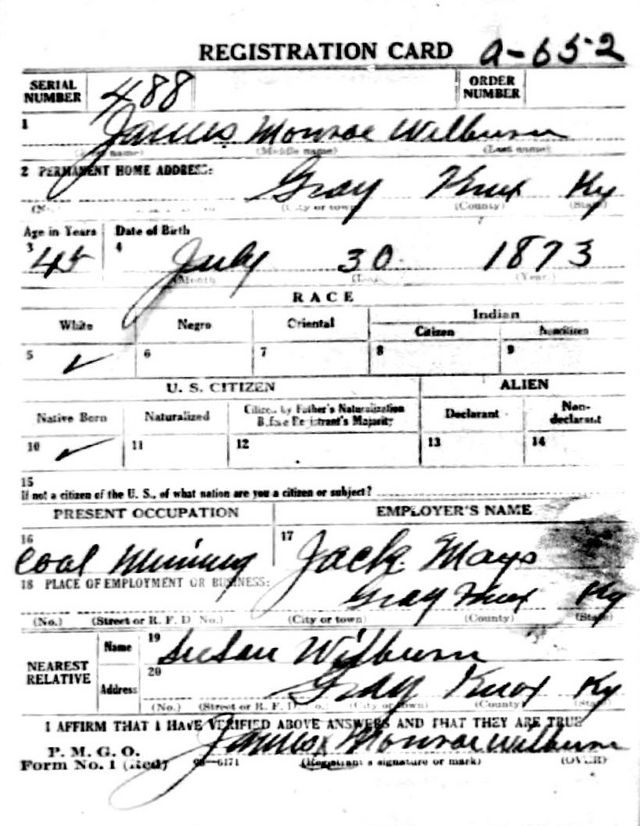 REGISTRATION CARD a-652
SERIAL NUMBER 488 ORDER NUMBER
1 James Monroe Wilburn
(First name) (Middle name) (Last name)
2 PERMANENT HOME ADDRESS:
Gray Knox Ky
(No.) (City or town) (County) (State)
Age in Years Date of Birth
3 45 4 July 30 1873
(Month) (Day) (Year)
RACE
White Negro Oriental Indian
Citizen Noncitizen
5 ✓ 6 7 8 9
U. S. CITIZEN ALIEN
Native Born Naturalized Citizen by Father's Naturalization Before Registrant's Majority Declarant Non-declarant
10 ✓ 11 12 13 14
15
If not a citizen of the U. S., of what nation are you a citizen or subject?
PRESENT OCCUPATION EMPLOYER'S NAME
16 Coal Mining 17 Jack Mays
18 PLACE OF EMPLOYMENT OR BUSINESS:
Gray Knox Ky
(No.) (Street or R. F. D. No.) (City or town) (County) (State)
NEAREST RELATIVE Name 19 Susan Wilburn
Address 20 Gray Knox Ky
(No.) (Street or R. F. D. No.) (City or town) (County) (State)
I AFFIRM THAT I HAVE VERIFIED ABOVE ANSWERS AND THAT THEY ARE TRUE
P. M. G. O.
Form No. 1 (Red) James x Monroe Wilburn
(Registrant's signature or mark) (OVER)